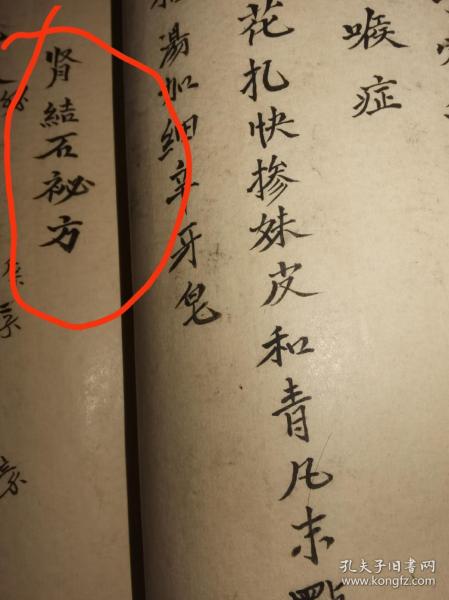 喉症
花扎快掺妹皮和青凡末點
湯加細辛牙皂
肾結石祕方
孔夫子旧书网
www.kongfz.com